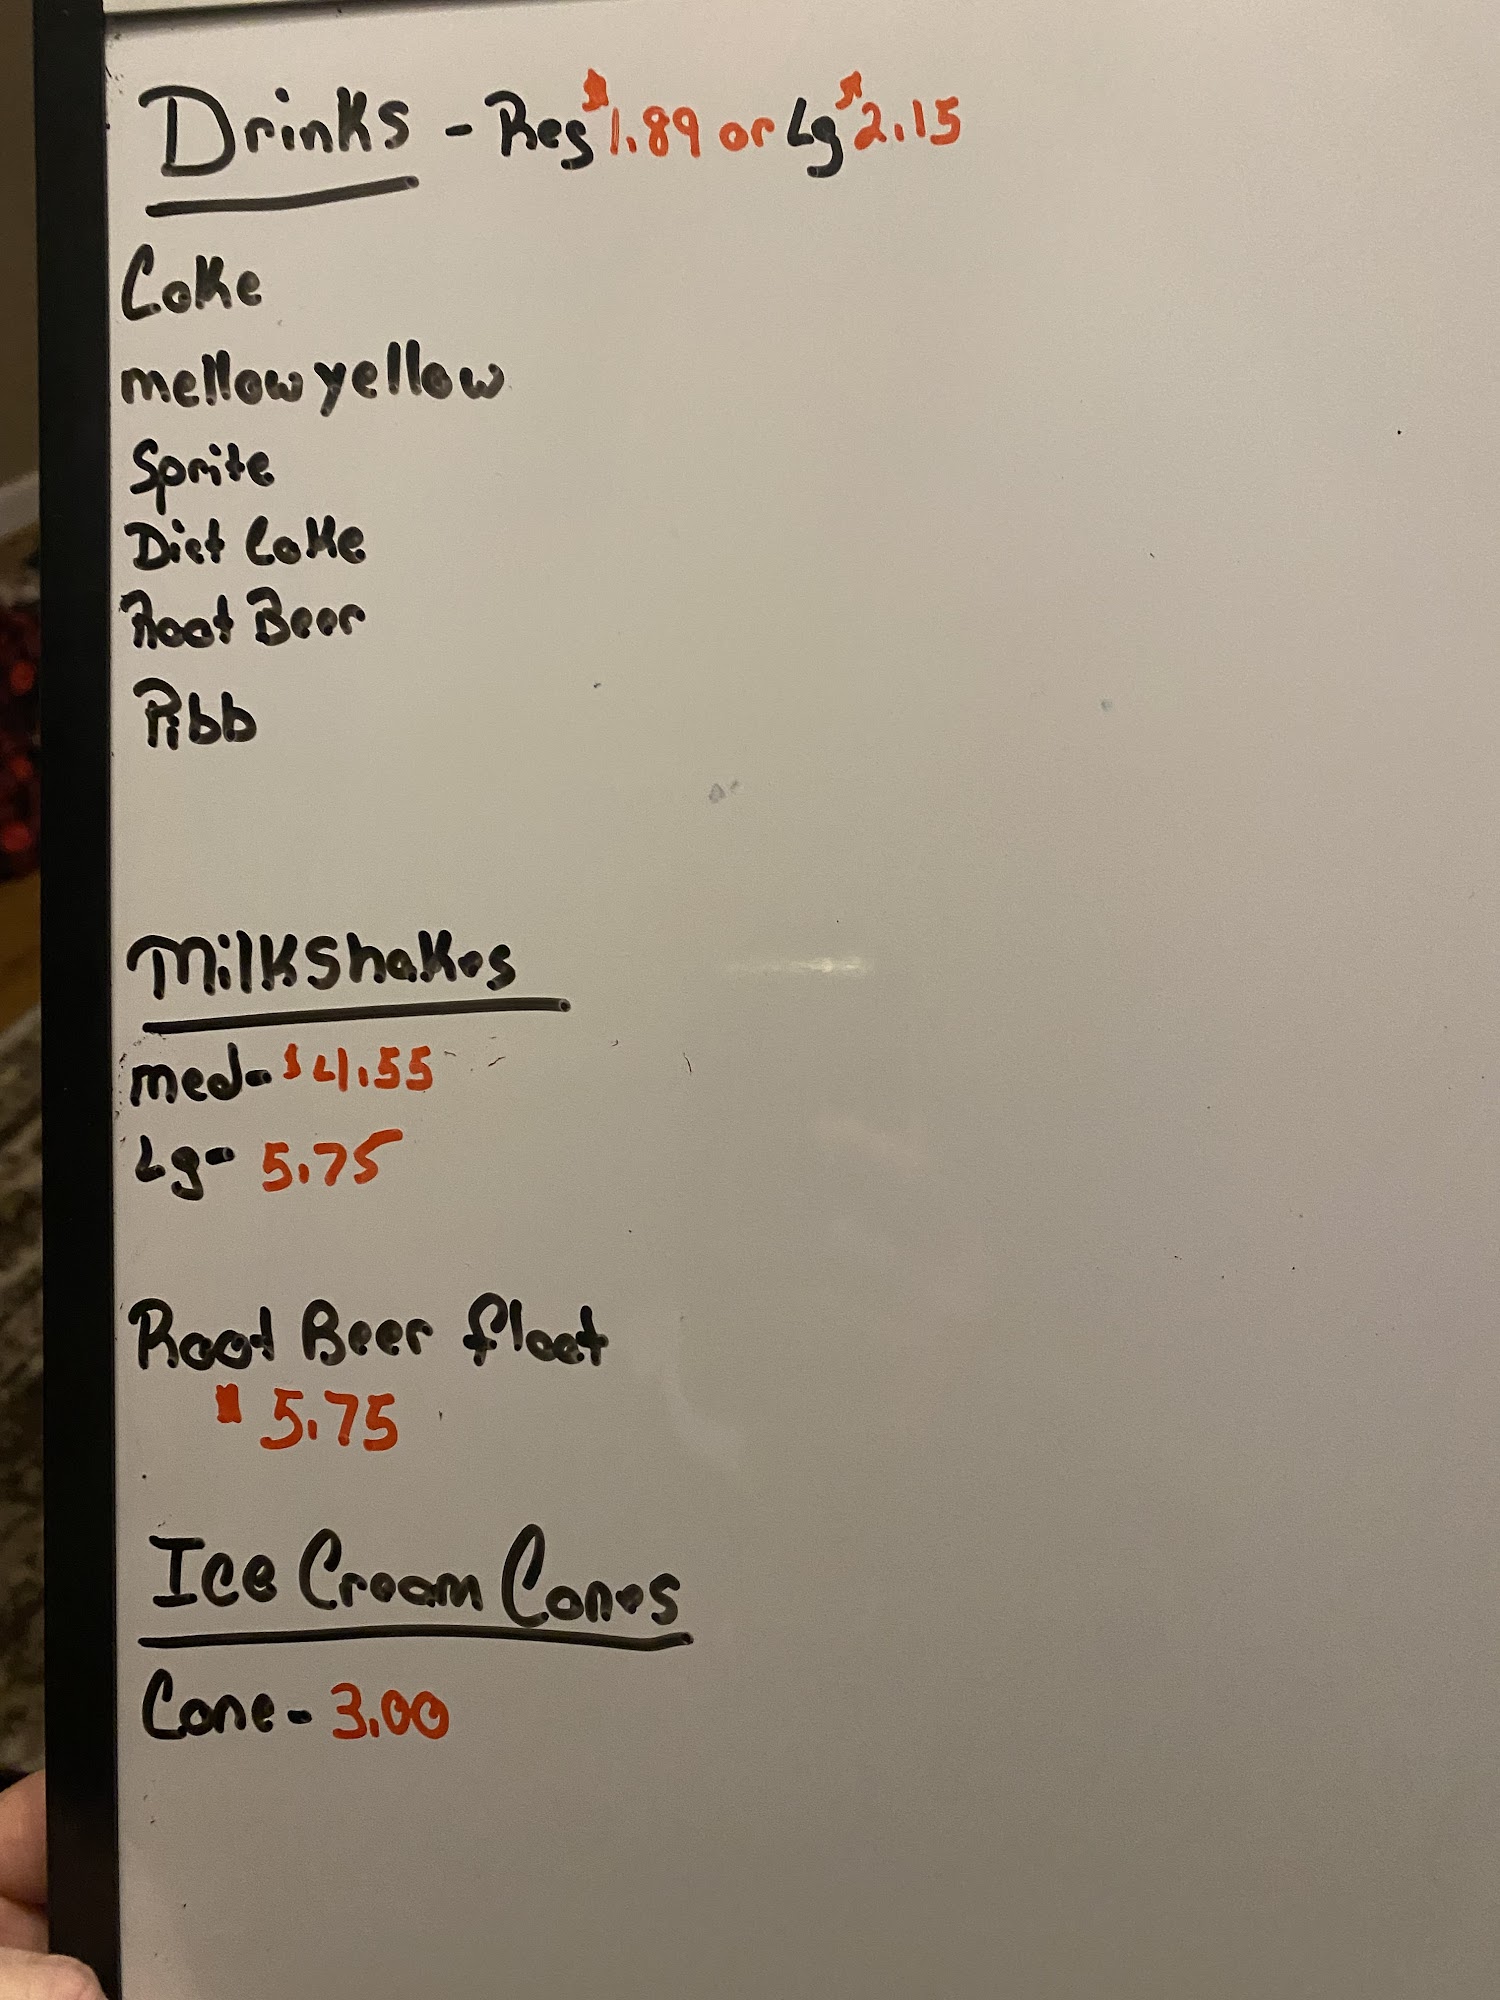 Drinks - Reg $1.89 or Lg $2.15
Coke
mellow yellow
Sprite
Diet Coke
Root Beer
Pibb
Milkshakes
med- $4.55
Lg- 5.75
Root Beer float
$5.75
Ice Cream Cones
Cone- 3.00